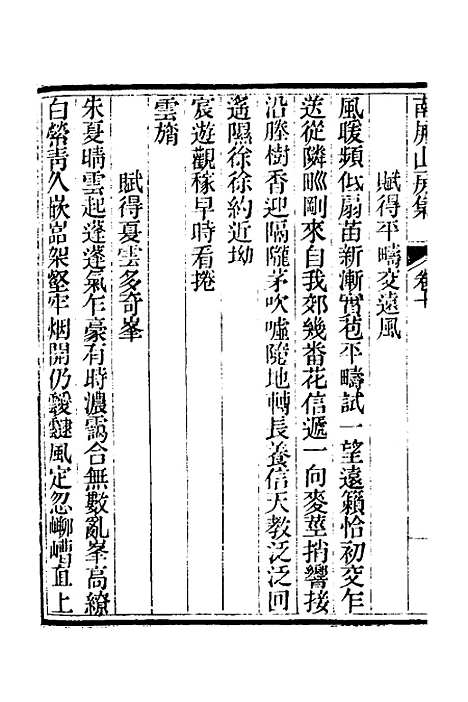 南屏山房集 卷十
賦得平疇交遠風
風暖頻低扇苗新漸實苞平疇試一望遠籟恰初交乍
送從隣畎剛來自我郊幾番花信遞一向麥莖捎響接
沿塍樹香迎隔隴茅吹噓隨地轉長養信天教泛泛回
遙隰徐徐約近坳
宸遊觀稼早時看捲
雲旓
賦得夏雲多奇峯
朱夏晴雲起蓬蓬氣乍豪有時濃靄合無數亂峯高繚
白縈青久嵌嵓架壑牢烟開仍靉靆風定忽嶚嶆直上